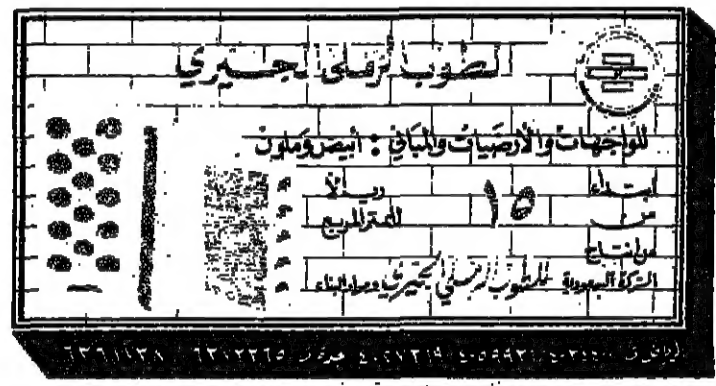 الطوب الرملي الجيري
للواجهات والأرضيات والمباني : أبيض وملون
ابتداء من ١٥ ريالاً للمتر المربع
من انتاج
الشركة السعودية للطوب الرملي الجيري ومواد البناء
الرياض ت ٤٠٥٩٩٢١ ٤٠٢٧٣١٩ جدة ت ٦٣١٢٣٦٥